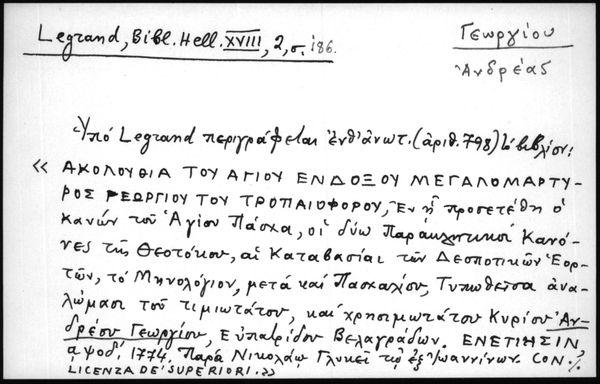 Legrand, Bibl. Hell. XVIII, 2, σ. 186.
Γεωργίου
Ἀνδρέας
Ὑπό Legrand περιγράφεται ἔνθ' ἀνωτ. (ἀριθ. 798) τὸ βιβλίον:
« ΑΚΟΛΟΥΘΙΑ ΤΟΥ ΑΓΙΟΥ ΕΝΔΟΞΟΥ ΜΕΓΑΛΟΜΑΡΤΥ-
ΡΟΣ ΓΕΩΡΓΙΟΥ ΤΟΥ ΤΡΟΠΑΙΟΦΟΡΟΥ, Ἐν ᾗ προσετέθη ὁ
κανών τοῦ Ἁγίου Πάσχα, οἱ δύω Παράκλητικοί Κανό-
νες τῆς Θεοτόκου, αἱ Καταβασίαι τῶν Δεσποτικῶν Ἑορ-
τῶν, τό Μηνολόγιον, μετά καί Πασχαλίου, Τυπωθεῖσα ἀνα-
λώμασι τοῦ τιμιωτάτου, καί χρησιμωτάτου Κυρίου Ἀν-
δρέου Γεωργίου, Εὐπατρίδου Βελαγράδων. ΕΝΕΤΙΗΣΙΝ,
αψοδ', 1774. Παρά Νικολάῳ Γλυκεῖ τῷ ἐξ Ἰωαννίνων. CON
LICENZA DE' SUPERIORI.»